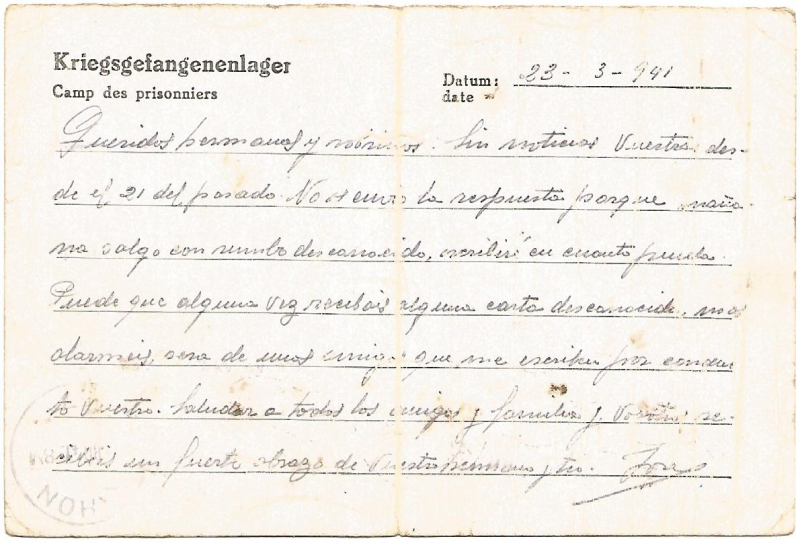 Kriegsgefangenenlager
Camp des prisonniers
Datum: 23 - 3 - 941
date
Queridos hermanos y sobrinos: Sin noticias Vuestras des-
de el 21 del pasado. No os envio la respuesta porque maña-
na salgo con rumbo desconocido, escribiré en cuanto pueda.
Puede que alguna vez recibais alguna carta desconocida, no os
alarmeis, sera de unos amigos que me escriben por conduc
to Vuestro. Saludar a todos los amigos y familia y Vosotros re-
cibir un fuerte abrazo de Vuestro hermano y tio.